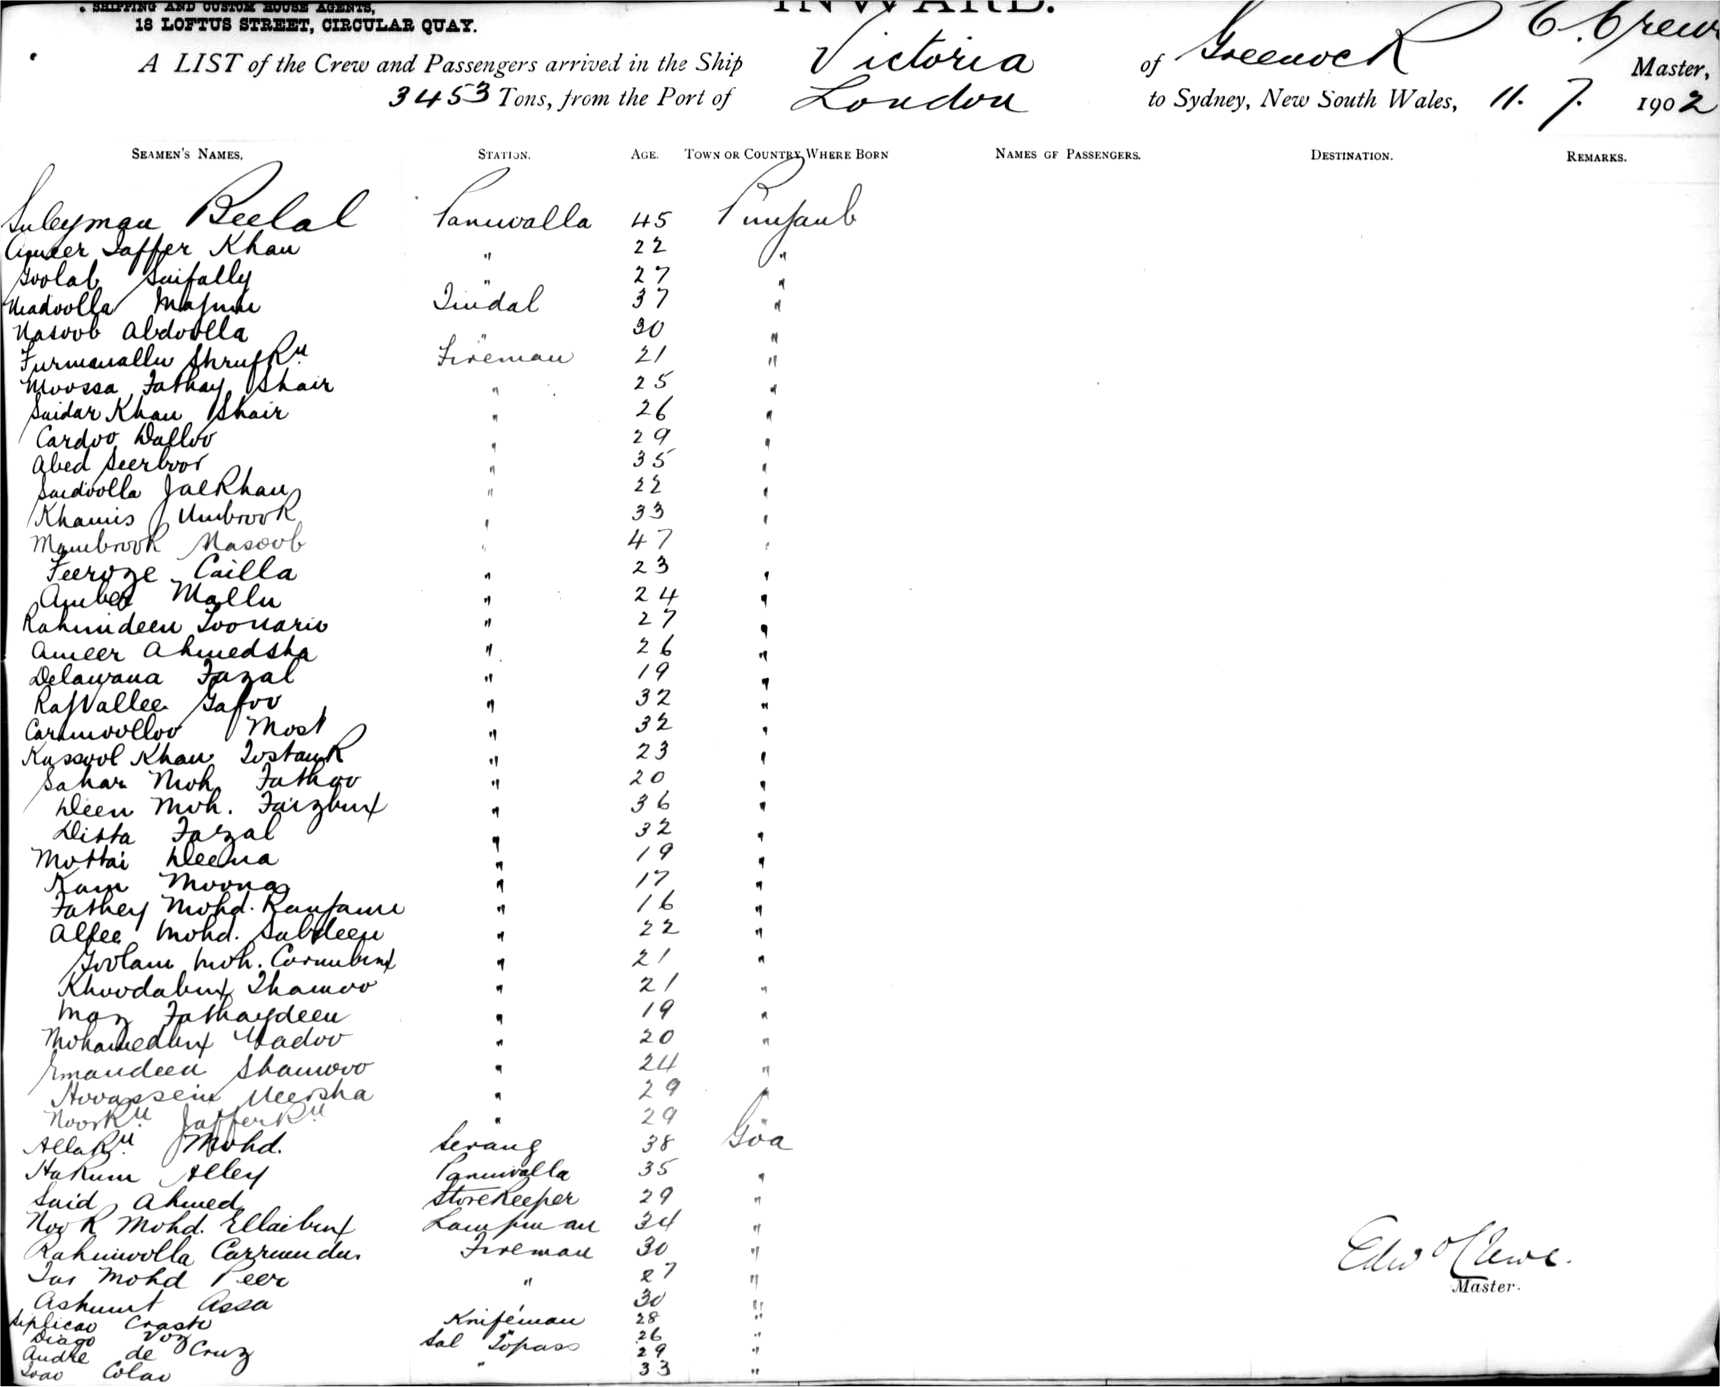 SHIPPING AND CUSTOM HOUSE AGENTS,
18 LOFTUS STREET, CIRCULAR QUAY.
INWARD.
A LIST of the Crew and Passengers arrived in the Ship Victoria of Greenock Master,
3453 Tons, from the Port of London to Sydney, New South Wales, 11. 7. 1902
SEAMEN'S NAMES. STATION. AGE. TOWN OR COUNTRY WHERE BORN NAMES OF PASSENGERS. DESTINATION. REMARKS.
Suleyman Beelal Paniwalla 45 Punjaub
Ameer Jaffer Khan " 22 "
Goolab Saifally " 27 "
Tindal 37 "
Nasoob Abdoolla " 30 "
Fireman 21 "
Moossa Fathay Shair " 25 "
Saidar Khan Shair " 26 "
Cardoo Dulloo " 29 "
Abed Seerboor " 35 "
Saidoolla JaeKhan " 22 "
Khamis Umbrook " 33 "
Mambrook Nasoob " 47 "
Feeroze Cailla " 23 "
Amber Mallu " 24 "
Rahimdeen Toonario " 27 "
Ameer Ahmedsha " 26 "
Delawana Fazal " 19 "
RajVallee Gafoo " 32 "
Caramoolloo Most " 32 "
Russool Khan Tostank " 23 "
Sahar Moh Fathoo " 20 "
Deen Moh. Faizbux " 36 "
Ditta Fazal " 32 "
Mottai Deena " 19 "
Ram Moona " 17 "
Fathey Mohd. " 16 "
Alfee Mohd. Sabdeen " 22 "
Goolam Moh. Carimbux " 21 "
Khoodabux Thamoo " 21 "
Fathaydeen " 19 "
Mohamedbux Vadoo " 20 "
Emandeen Shamoo " 24 "
Hoossein Meersha " 29 "
NoorKn Jaffer Kn " 29 "
AllaKn Mohd. Serang 38 Goa
Hakum Alley Paniwalla 35 "
Said Ahmed Storekeeper 29 "
Noor Mohd. Ellaibux Lampman 34 "
Rahimoolla Fireman 30 "
Jas Mohd Peer " 27 "
Assa " 30 "
Crasto Knifeman 28 "
Diago Voz " 26 "
Andre de Cruz Sal Topass 29 "
Joao Colao " 33 "
Master.